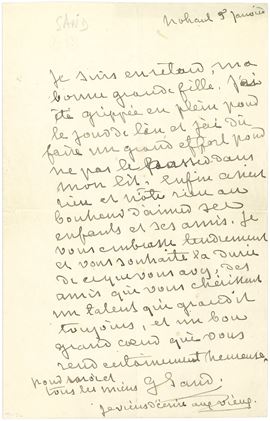 SAND
Nohant 9 Janvier
Je suis en retard, ma
bonne grande fille. J'ai
été grippée en plein pour
le jour de l'an et j'ai dû
faire un grand effort pour
ne pas le passer dans
mon lit. Enfin ce n'est
rien et n'ôte rien au
bonheur d'aimer ses
enfants et ses amis. Je
vous embrasse tendrement
et vous souhaite la durée
de ce que vous avez; des
amis que vous chérissent
un talent qui grandit
toujours, et un bon
grand cœur que vous
rend certainement heureuse.
pour moi et
tous les miens G Sand
Je viens d'écrire aux